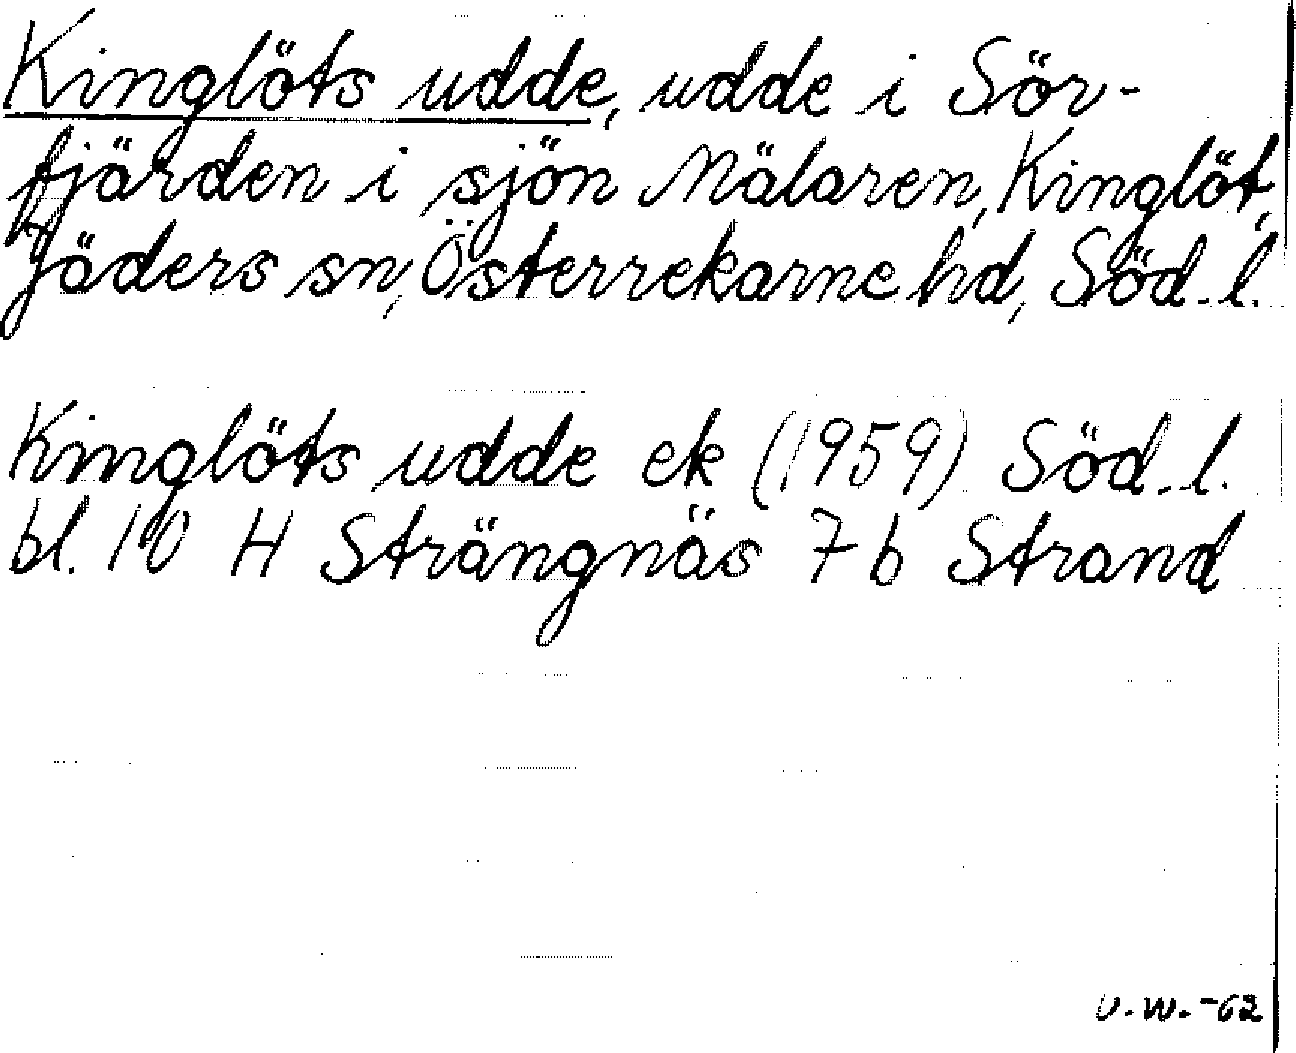 Kinglöts udde, udde i Sör-
fjärden i sjön Mälaren, Kinglöt,
Jäders sn, Österrekarne hd, Söd. l.
Kinglöts udde ek (1959) Söd. l.
bl. 10 H Strängnäs 7 b Strand
U.W. -62